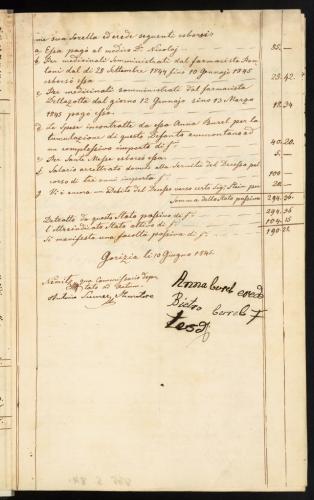 me sua sorella ed erede seguenti esborsi
a Essa pagò al medico Dr. Nicolaj 35.—
b Per medicinali somministrati dal farmacista
toni dal dì 28 Settembre 1844 fino 10 Gennajo 1845
esborsò essa 23. 42.
c Per medicinali somministrati dal farmacista
dal giorno 12 Gennajo sino 13 Marzo
1845 pagò essa 18. 34
d Le spese incontrate da essa Anna Burel per la
tumulazione di questo Defonto ammontano ad
un complessivo importo di f. 40. 20.
e Per Sante Messe esborsò essa 5.—
f Salario arretrato dovuto alla servitù del Decesso pel
corso di tre anni importa f. 100 —
g Vi è ancora un Debito del Decesso verso certo Sig. 20.—
Somma dello stato passivo 294. 36
Detratto da questo Stato passivo di f. 294. 36
l'Attivo di f. 104. 15
Si manifesta una facoltà passiva di f. 190. 21
Gorizia li 10 Giugno 1845.
qua Commissario depu
tato ad actum.
Antonio
Anna burel erede
Pietro